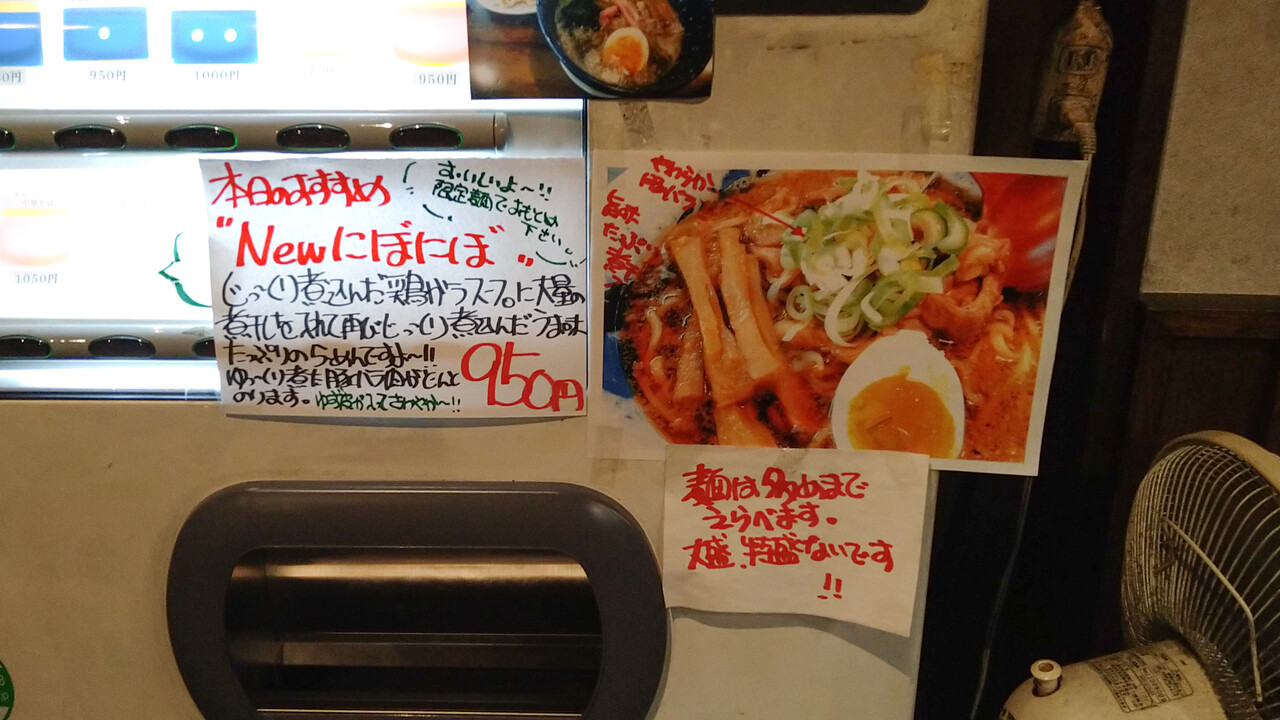 950円
1000円
950円
1050円
本日のおすすめ
おいしいよ〜!!
限定麺でおもとめ
下さい。
"Newにぼにぼ"
じっくり煮込んだ鶏がらスープに大量の
煮干しを入れて再びじっくり煮込んだうまみ
たっぷりのらーめんですよ〜!!
ゆっくり煮た豚バラ肉がどんと
のります。
950円
やわらか
豚バラ
旨味
たっぷり
麺は多めまで
えらべます。
大盛、特盛ないです
!!